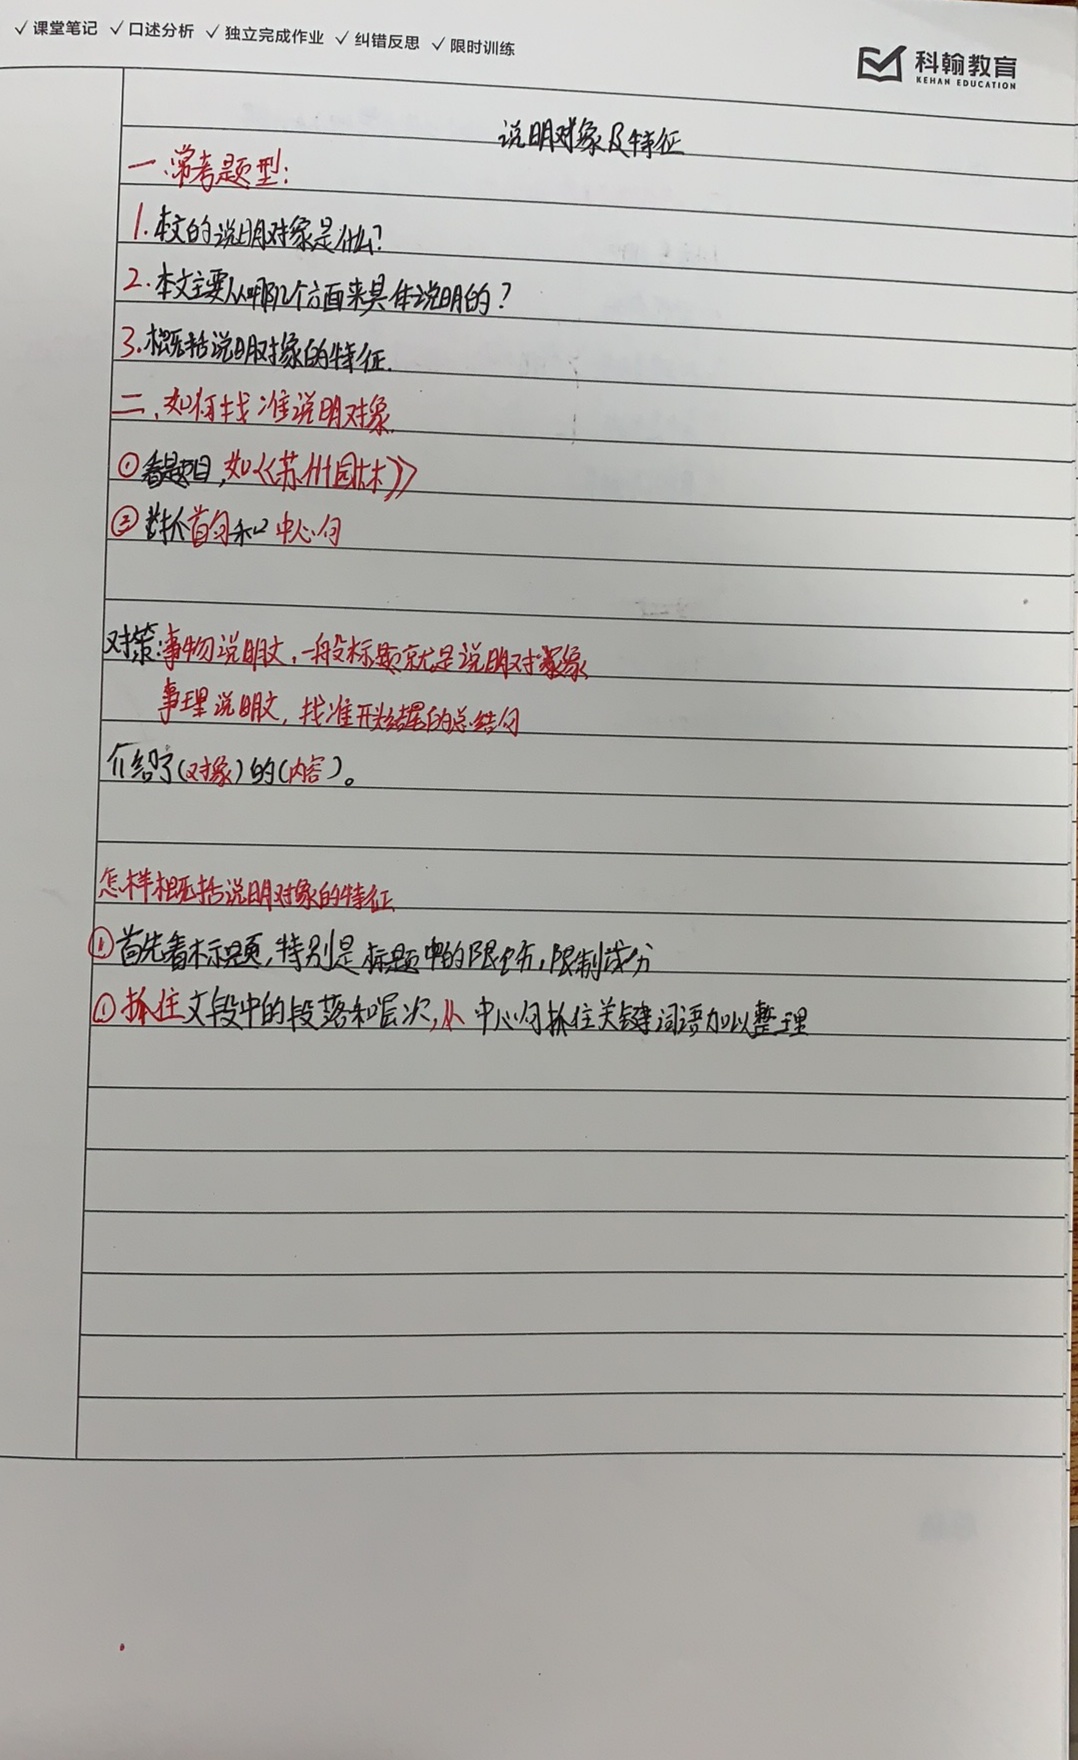 ✓课堂笔记 ✓口述分析 ✓独立完成作业 ✓纠错反思 ✓限时训练
科翰教育
KEHAN EDUCATION
说明对象及特征
一.常考题型:
1.本文的说明对象是什么?
2.本文主要从哪几个方面来具体说明的?
3.概括说明对象的特征.
二,如何找准说明对象.
①看题目,如《苏州园林》
②抓首句和中心句
对策:事物说明文,一般标题就是说明对象
事理说明文,找准开头结尾的总结句
介绍了(对象)的(内容)。
怎样概括说明对象的特征
①首先看标题,特别是标题中的限,限制成分
①抓住文段中的段落和层次,从中心句抓住关键词语加以整理